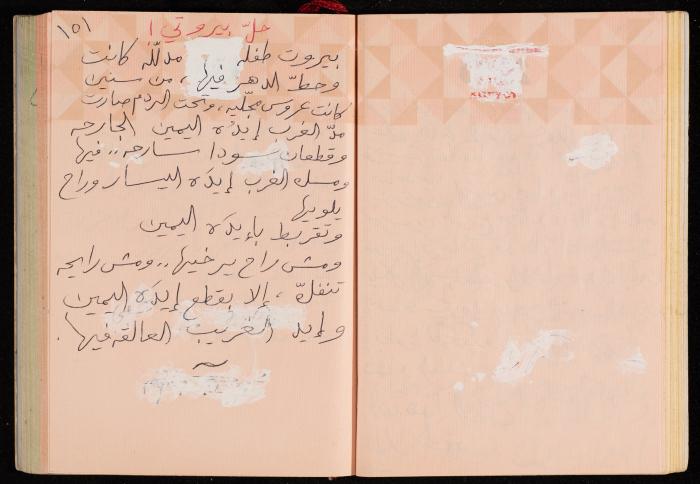 ١٥١
حلّ بيروتي !
بيروت طفله مدلّله كانت
وحطّ الدهر فيها ، من سنين
كانت عروس مجلّيه ، وتحت الردم صارت
مدّ الغرب إيدُه اليمين الجارحه
وقطعان سودا سارحه .. فيها
ومسك الغرب إيدَه اليسار وراح
يلويها
وتقربط بإيدَه اليمين
ومش راح يرخيها .. ومش رايحه
تنفلّه ، إلا بقطع إيدَه اليمين
وإيد الغريب العالقه فيها .